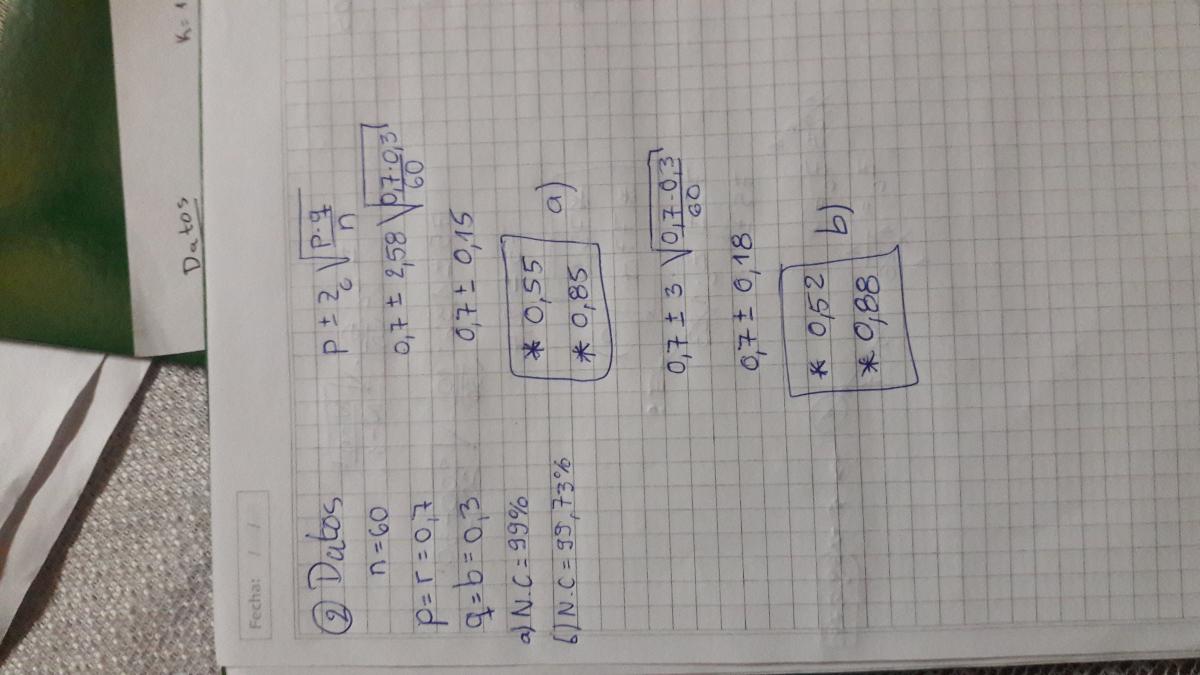 Datos
K=1
Fecha: / /
② Datos
n=60
p=r=0,7
q=b=0,3
a) N.C=99%
b) N.C=99,73%
p ± Zc √(p·q/n)
0,7 ± 2,58 √(0,7·0,3/60)
0,7 ± 0,15
* 0,55
* 0,85
a)
0,7 ± 3·√(0,7·0,3/60)
0,7 ± 0,18
* 0,52
* 0,88
b)